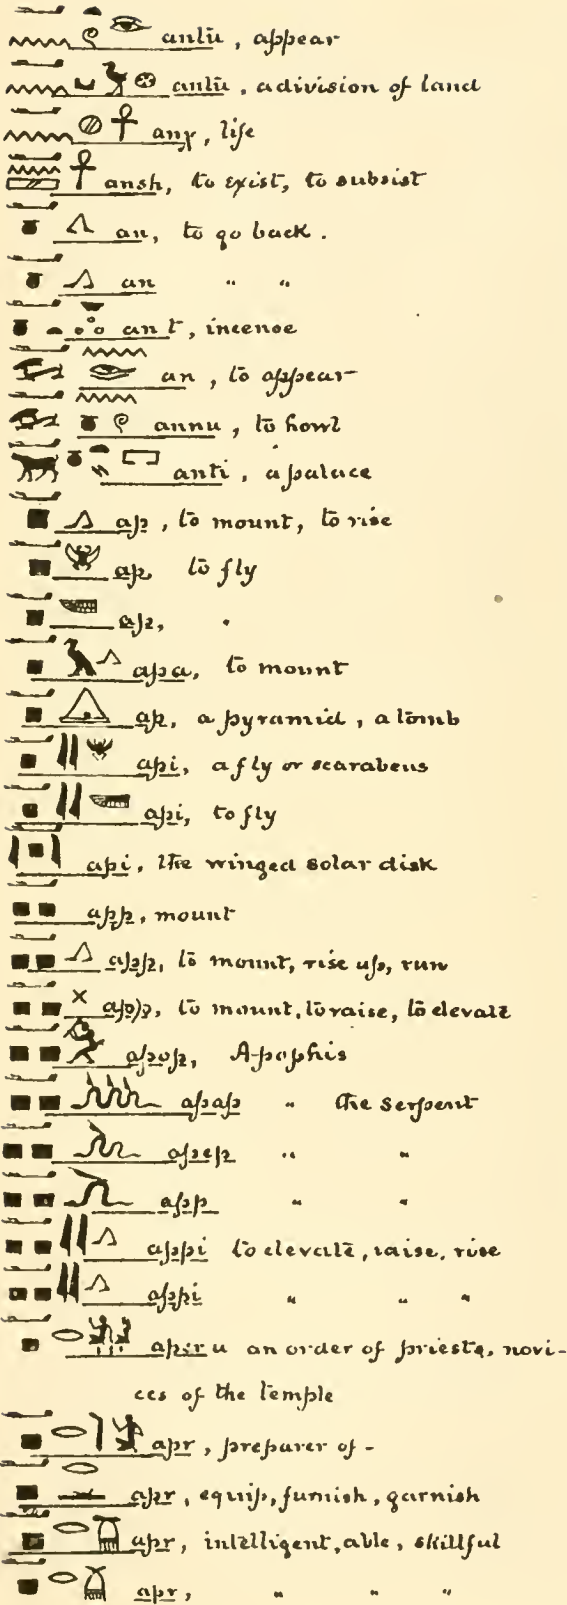 antu, appear
antu, a division of land
anχ, life
ansh, to exist, to subsist
an, to go back.
an " "
an t, incense
an, to appear
annu, to howl
anti, a palace
ap, to mount, to rise
ap, to fly
ap, "
apa, to mount
ap, a pyramid, a tomb
api, a fly or scarabeus
api, to fly
api, the winged solar disk
app, mount
app, to mount, rise up, run
app, to mount, to raise, to elevate
apop, Apophis
apap " the serpent
apep " "
app " "
appi to elevate, raise, rise
appi " " "
aperu an order of priests, novi-
ces of the temple
apr, preparer of -
apr, equip, furnish, garnish
apr, intelligent, able, skillful
apr, " " "